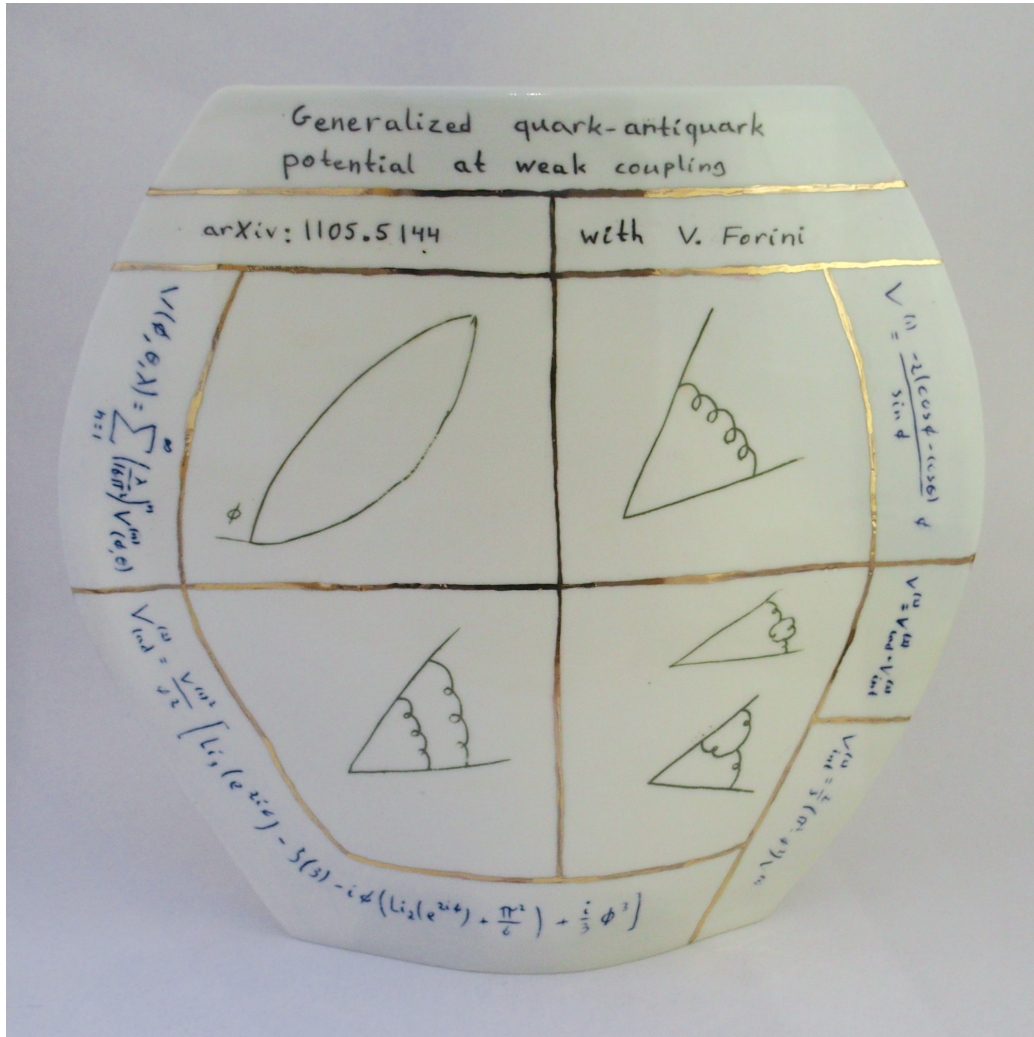 Generalized quark-antiquark
potential at weak coupling
arXiv: 1105.5144
with V. Forini
V(ϕ, θ, λ) = ∑_{n=1}^{∞} (λ/16π²)^n V^{(n)}(ϕ, θ)
V^{(1)} = -2(cosϕ - cosθ)/sinϕ ϕ
ϕ
V^{(2)} = V^{(2)}_{lad} + V^{(2)}_{int}
V^{(2)}_{lad} = V^{(1)2}/ϕ² [Li₃(e^{2iϕ}) - ζ(3) - iϕ(Li₂(e^{2iϕ}) + π²/6) + i/3 ϕ³]